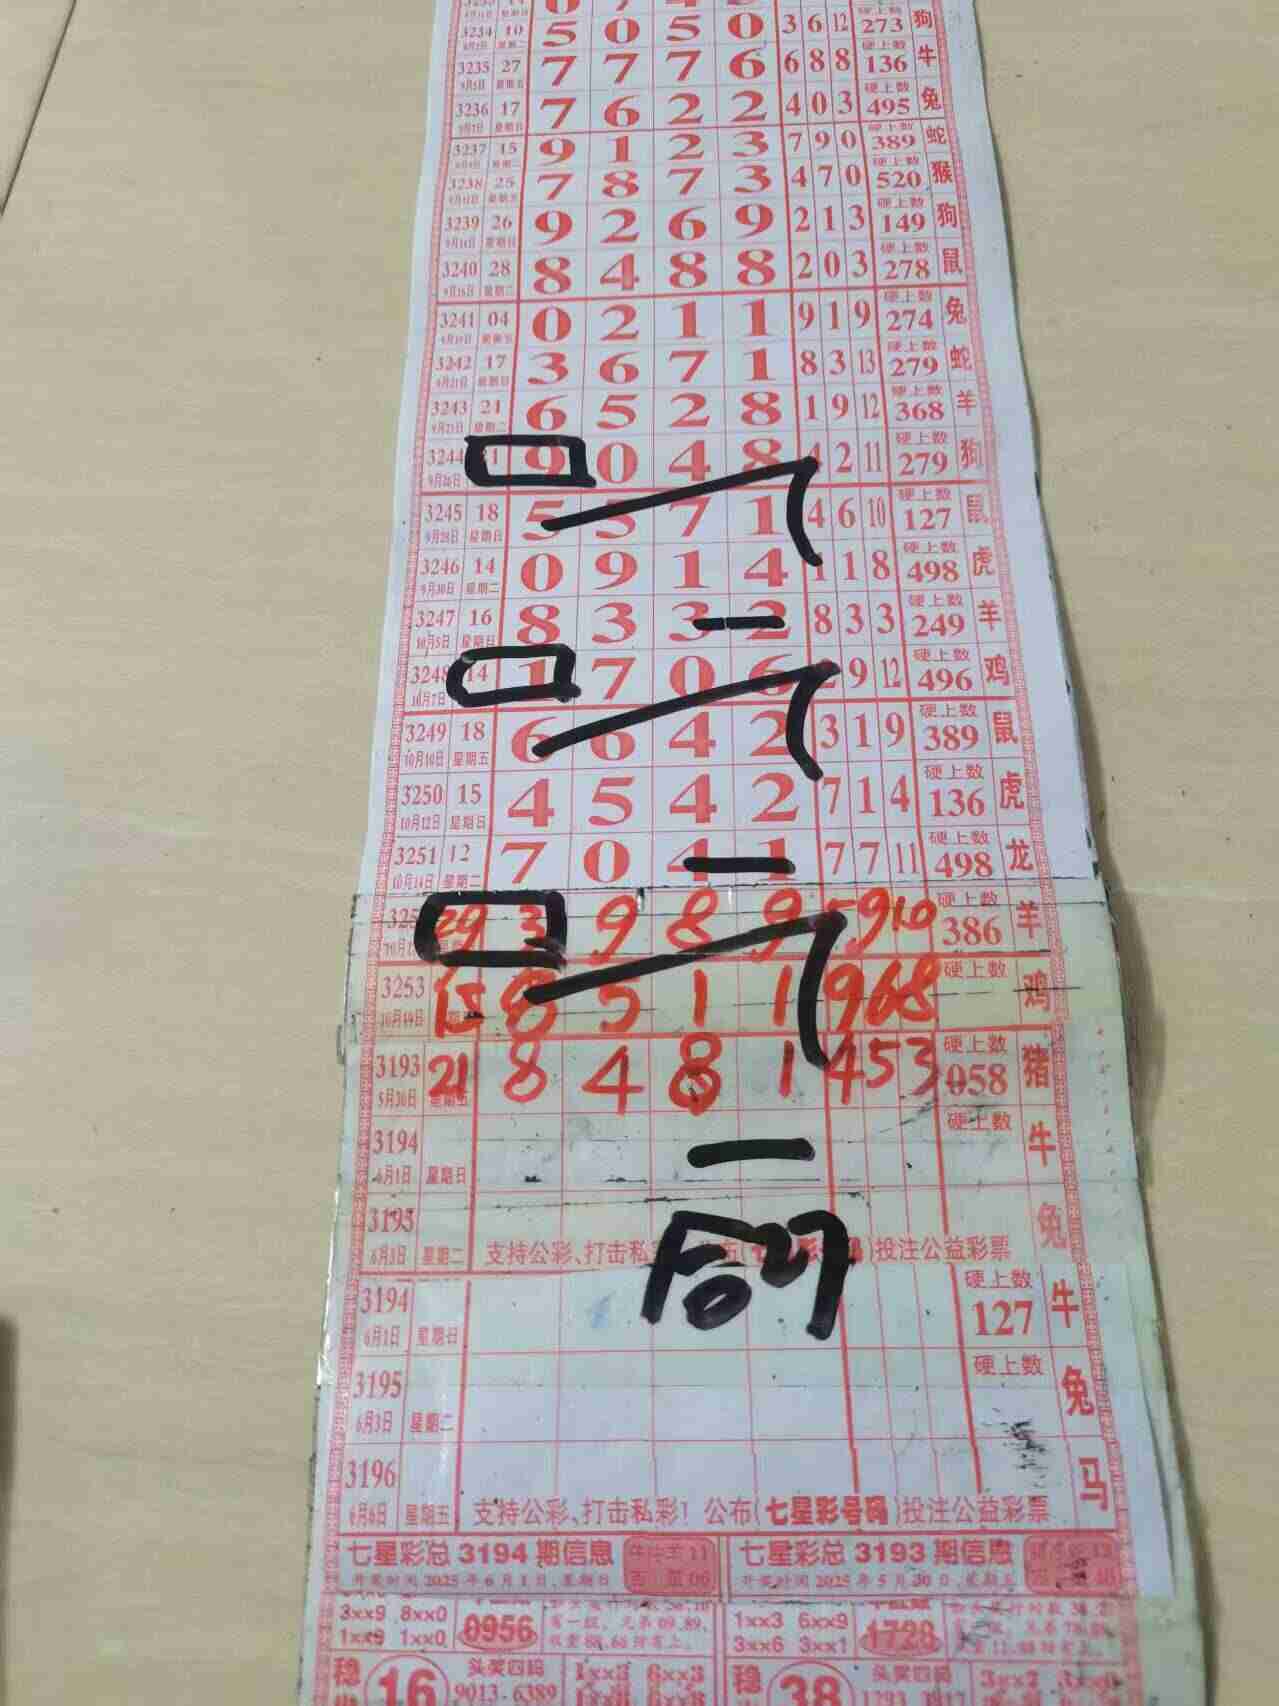 3234 10 5 0 5 0 3 6 12 硬上数 273 狗
9月2日 星期二
3235 27 7 7 7 6 6 8 8 硬上数 136 牛
9月5日 星期五
3236 17 7 6 2 2 4 0 3 硬上数 495 兔
9月7日 星期日
3237 15 9 1 2 3 7 9 0 硬上数 389 蛇
9月9日 星期二
3238 25 7 8 7 3 4 7 0 硬上数 520 猴
9月12日 星期五
3239 26 9 2 6 9 2 1 3 硬上数 149 狗
9月14日 星期日
3240 28 8 4 8 8 2 0 3 硬上数 278 鼠
9月16日 星期二
3241 04 0 2 1 1 9 1 9 硬上数 274 兔
9月19日 星期五
3242 17 3 6 7 1 8 3 13 硬上数 279 蛇
9月21日 星期日
3243 21 6 5 2 8 1 9 12 硬上数 368 羊
9月23日 星期二
3244 9 0 4 8 4 2 11 硬上数 279 狗
9月26日
3245 18 5 5 7 1 4 6 10 硬上数 127 鼠
9月28日 星期日
3246 14 0 9 1 4 1 1 8 硬上数 498 虎
9月30日 星期二
3247 16 8 3 3 2 8 3 3 硬上数 249 羊
10月5日 星期日
3248 14 1 7 0 6 2 9 12 硬上数 496 鸡
10月7日
3249 18 6 6 4 2 3 1 9 硬上数 389 鼠
10月10日 星期五
3250 15 4 5 4 2 7 1 4 硬上数 136 虎
10月12日 星期日
3251 12 7 0 4 1 7 7 11 硬上数 498 龙
10月14日 星期二
29 3 9 8 9 5 9 10 386 羊
3253 15 8 5 1 1 9 6 8 硬上数 鸡
10月19日
3193 21 8 4 8 1 4 5 3 硬上数 058 猪
5月30日 星期五
3194 硬上数 牛
6月1日 星期日
3195 兔
6月3日 星期二 支持公彩、打击私 投注公益彩票
合27
3194 硬上数 127 牛
6月1日 星期日
3195 硬上数 兔
6月3日 星期二
3196 马
6月6日 星期五 支持公彩、打击私彩！公布(七星彩号码)投注公益彩票
七星彩总 3194 期信息 七星彩总 3193 期信息
开奖时间 2025 年 6 月 1 日，星期日 开奖时间 2025 年 5 月 30 日，星期五
3xx9 8xx0 0956 1xx3 6xx9 1728
1xx9 1xx0 3xx6 3xx1
稳 16 头奖四码 1xx3 6xx3 稳 38 头奖四码
9013-6389